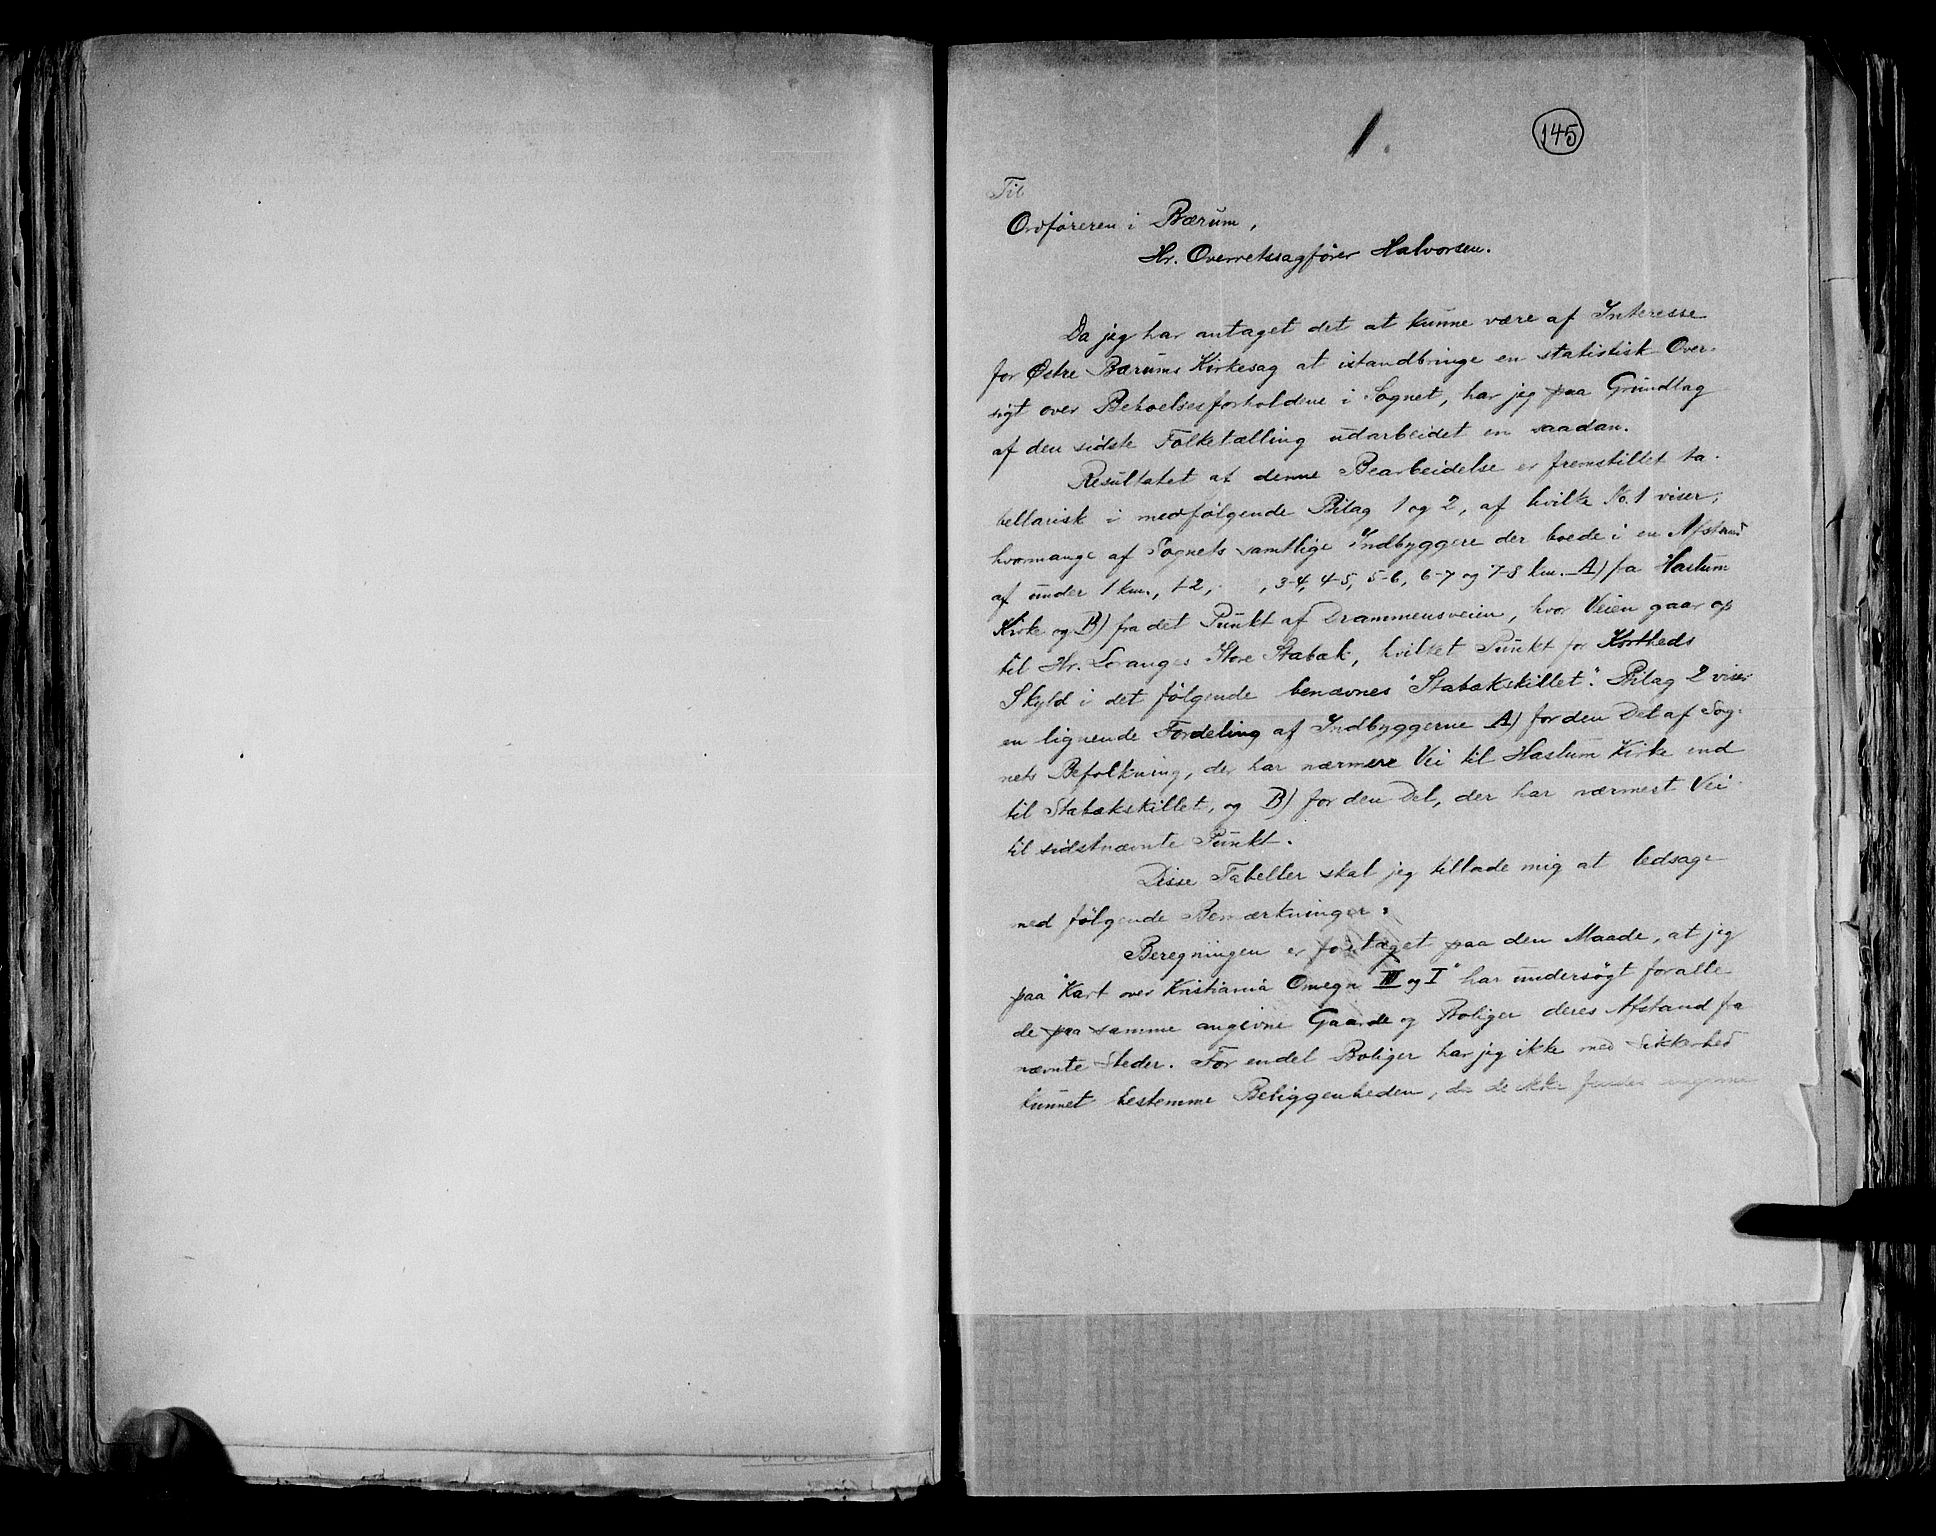 1.
145
Til
Ordföreren i Bærum,
Hr. Overretssagfører Halvorsen.
Da jeg har antaget det at kunne være af Interesse
for Østre Bærums Kirkesag at istandbringe en statistisk Over-
sigt over Beboelsesforholdene i Sognet, har jeg paa Grundlag
af den sidste Folketælling udarbeidet en saadan.
Resultatet af denne Bearbeidelse er fremstillet ta-
bellarisk i medfølgende Bilag 1 og 2, af hvilke No. 1 viser,
hvormange af Sognets samtlige Indbyggere der boede i en Afstand
af under 1 km., 1-2, , 3-4, 4-5, 5-6, 6-7 og 7-8 km. A) fra Haslum
Kirke og B) fra det Punkt af Drammensveien, hvor Veien gaar op
til Hr. Loranges Store Stabæk, hvilket Punkt for Kortheds
Skyld i det følgende benævnes "Stabækskillet". Bilag 2 viser
en lignende Fordeling af Indbyggerne A) for den Del af Sog-
nets Befolkning, der har nærmere Vei til Haslum Kirke end
til Stabækskillet, og B) for den Del, der har nærmest Vei
til sidstnævnte Punkt.
Disse Tabeller skal jeg tillade mig at ledsage
med følgende Bemærkninger:
Beregningen er foretaget paa den Maade, at jeg
paa "Kart over Kristiania Omegn III og I" har undersøgt for alle
de paa samme angivne Gaarde og Boliger deres Afstand fra
nævnte Steder. For endel Boliger har jeg ikke med Sikkerhed
kunnet bestemme Beliggenheden, da de ikke findes angivne